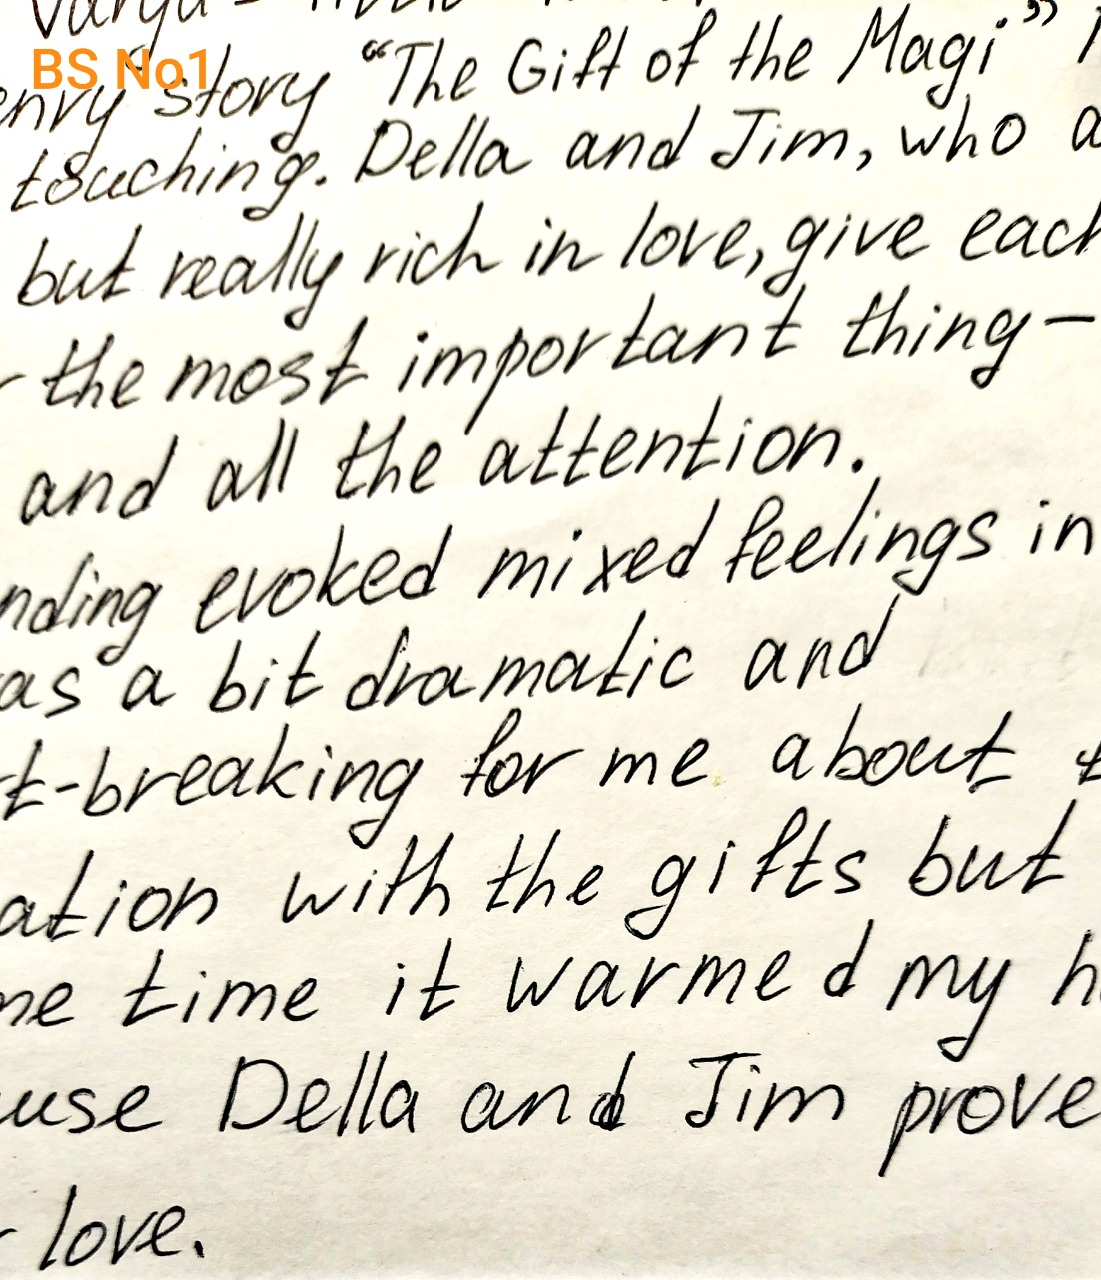 BS No1
enry story “The Gift of the Magi”
touching. Della and Jim, who a
but really rich in love, give each
the most important thing –
and all the attention.
nding evoked mixed feelings in
as a bit dramatic and
t-breaking for me about t
ation with the gifts but
me time it warmed my h
use Della and Jim prove
love.